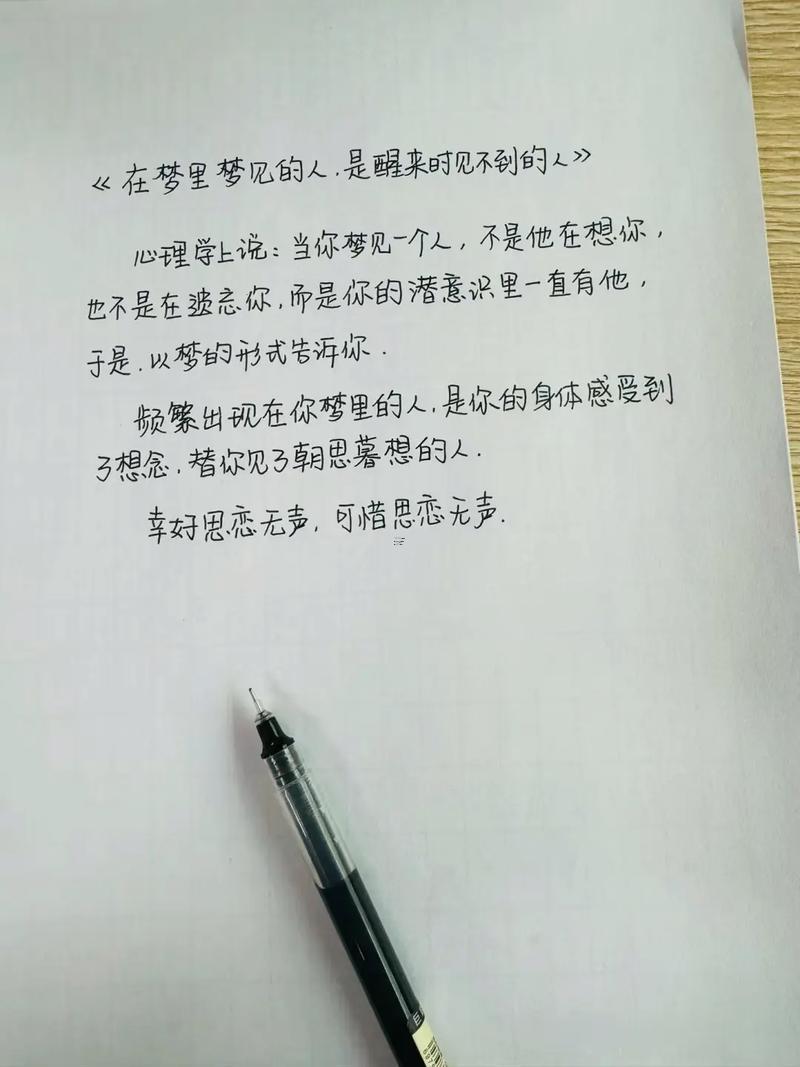 《在梦里梦见的人,是醒来时见不到的人》
心理学上说:当你梦见一个人,不是他在想你,
也不是在遗忘你,而是你的潜意识里一直有他,
于是.以梦的形式告诉你.
频繁出现在你梦里的人,是你的身体感受到
了想念,替你见了朝思暮想的人.
幸好思恋无声,可惜思恋无声.